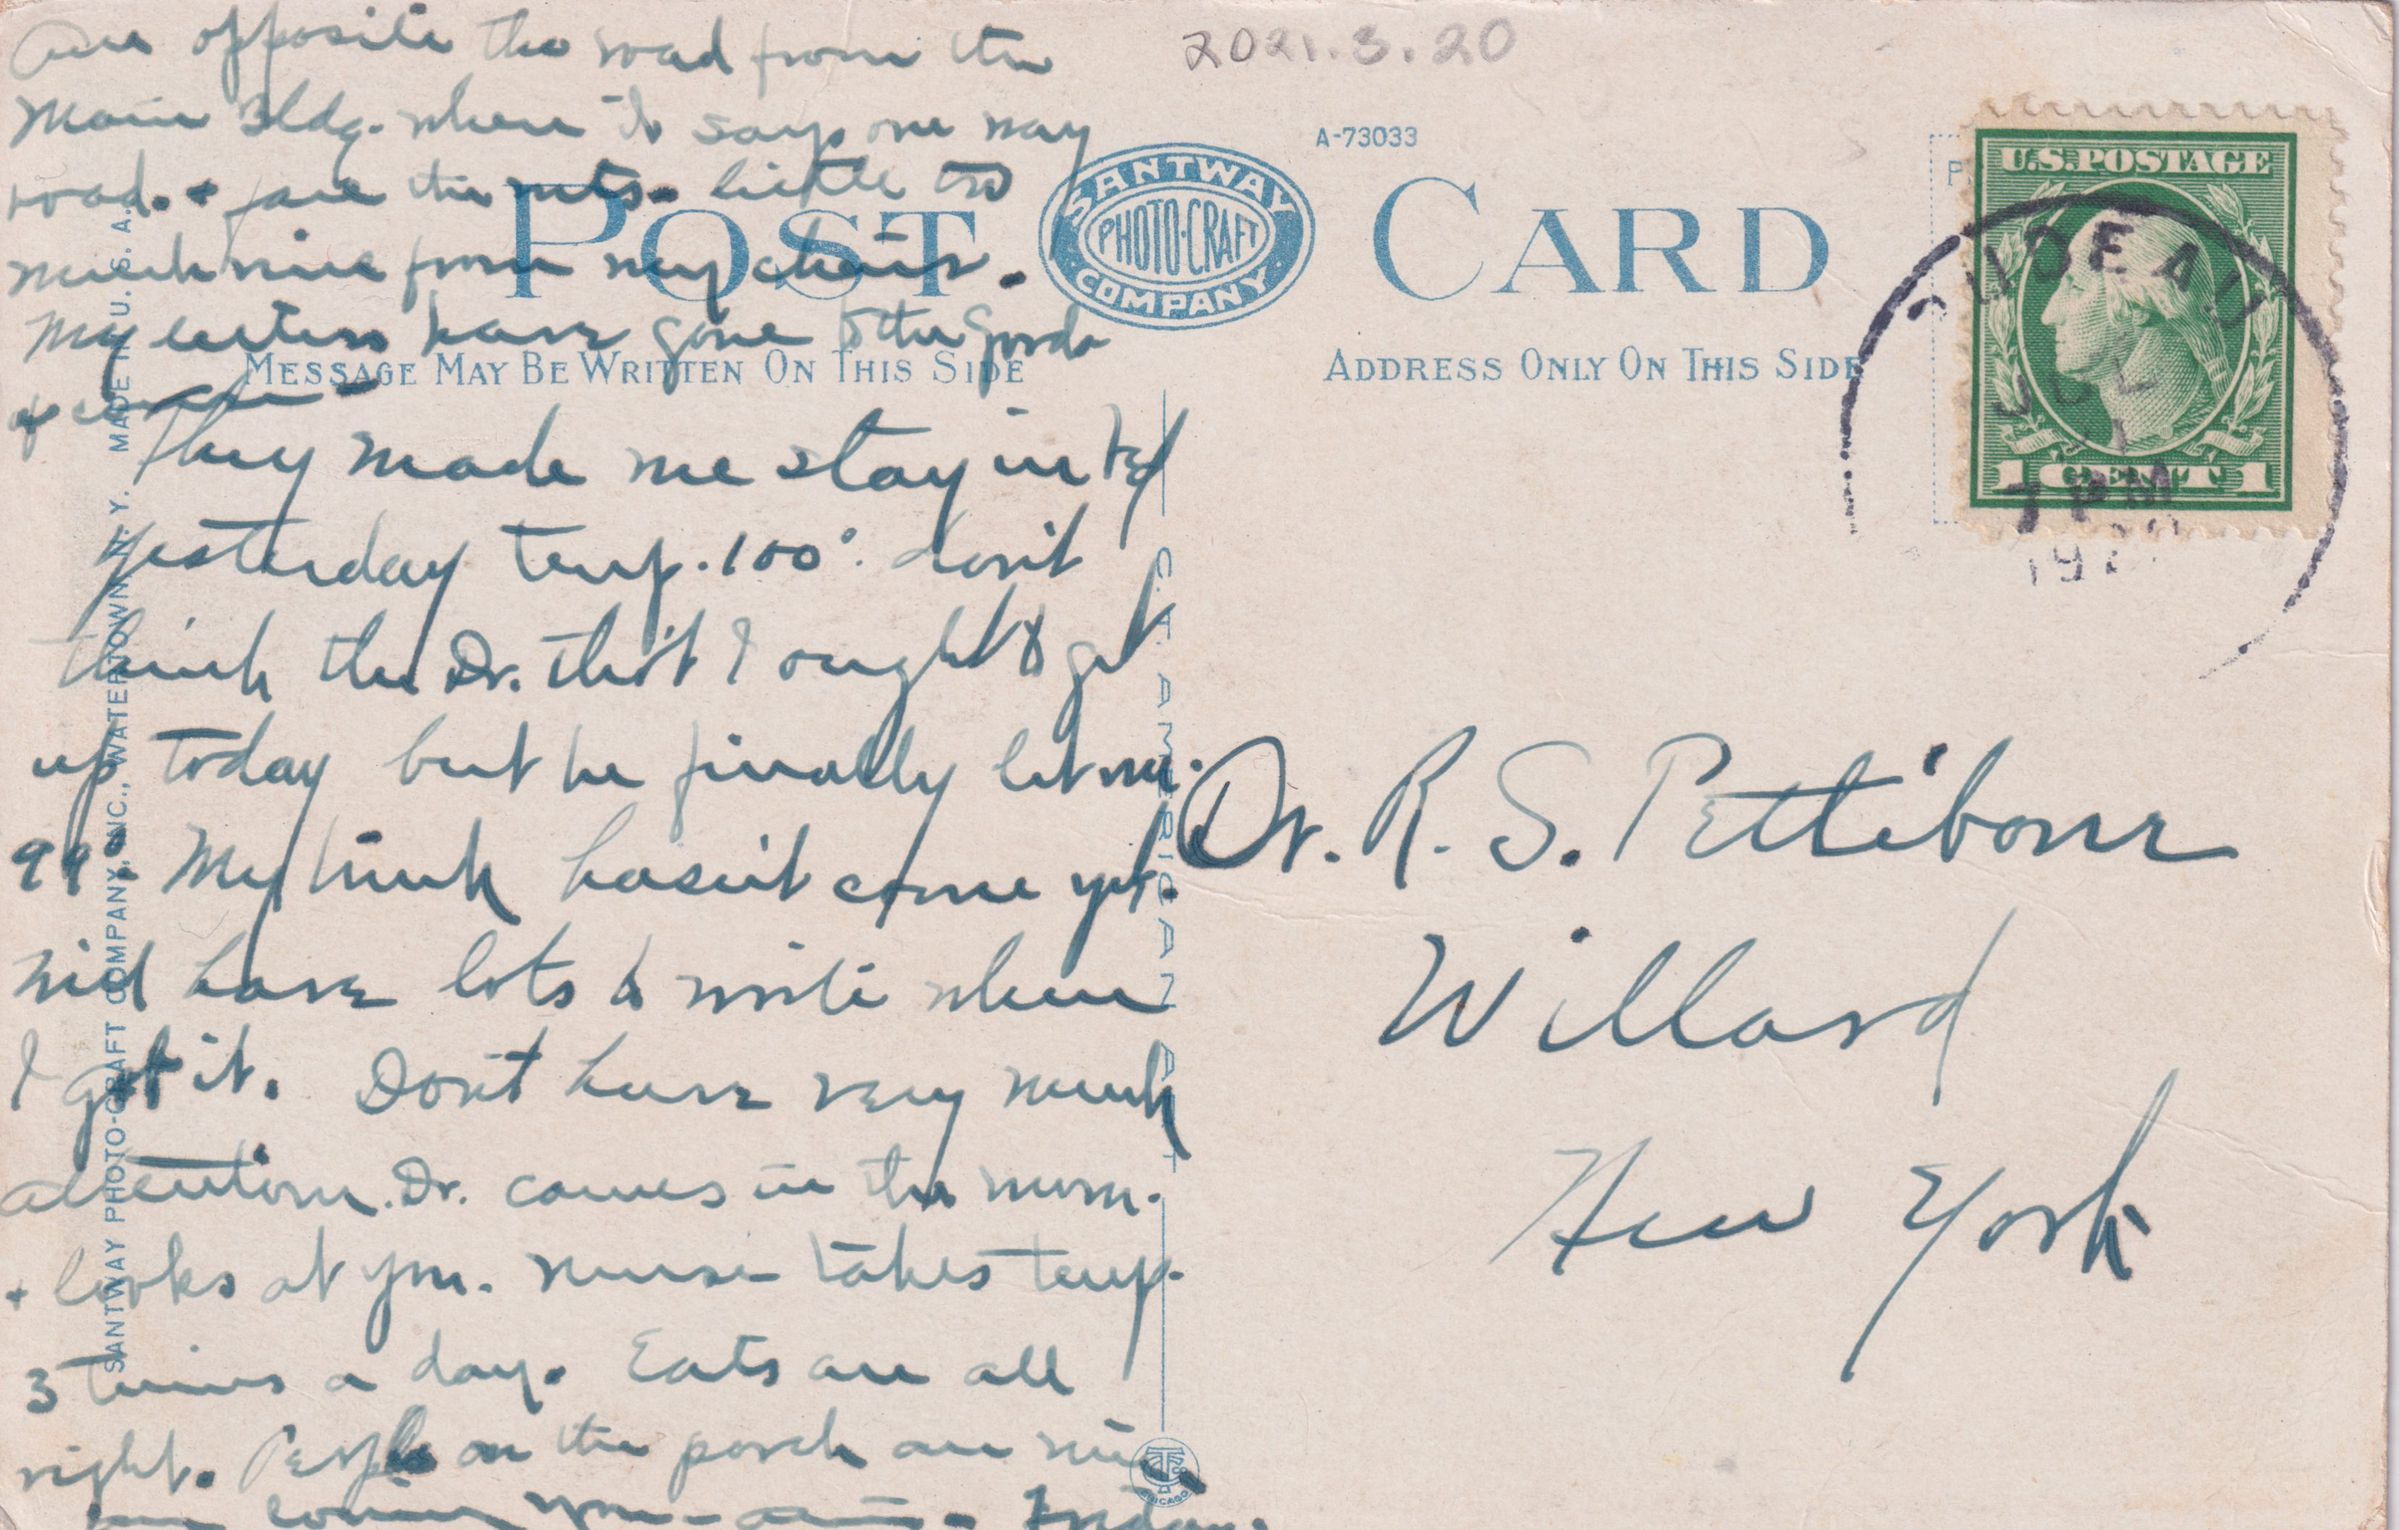 are opposite the road from the
2021.3.20
Main Bldg. where it says one way
A-73033
road. + face the
little too
much mice from my chair.
POST CARD
SANTWAY
PHOTO-CRAFT
COMPANY
My letters have gone to the
MESSAGE MAY BE WRITTEN ON THIS SIDE
ADDRESS ONLY ON THIS SIDE
U.S. POSTAGE
1 CENT 1
TRUDEAU
JUL
7 PM
They made me stay in bed
yesterday temp. 100°. don't
think the Dr. tho't I ought to get
up today but he finally let me.
99°. My trunk hasn't come yet.
Will have lots to write when
I get it. Don't have very much
attention. Dr. comes in the morn.
+ looks at you. nurse takes temp.
3 times a day. Eats are all
right. People on the porch are nice.
Friday.
Dr. R. S. Pettibone
Willard
New York
SANTWAY PHOTO-CRAFT COMPANY, INC., WATERTOWN, N. Y. MADE IN U. S. A.
C. T. AMERICAN ART
CHICAGO